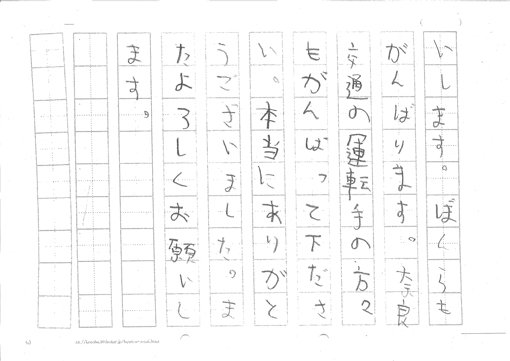 いします。ぼくらも
がんばります。奈良
交通の運転手の方々
もがんばって下ださ
い。本当にありがと
うございました。ま
たよろしくお願いし
ます。